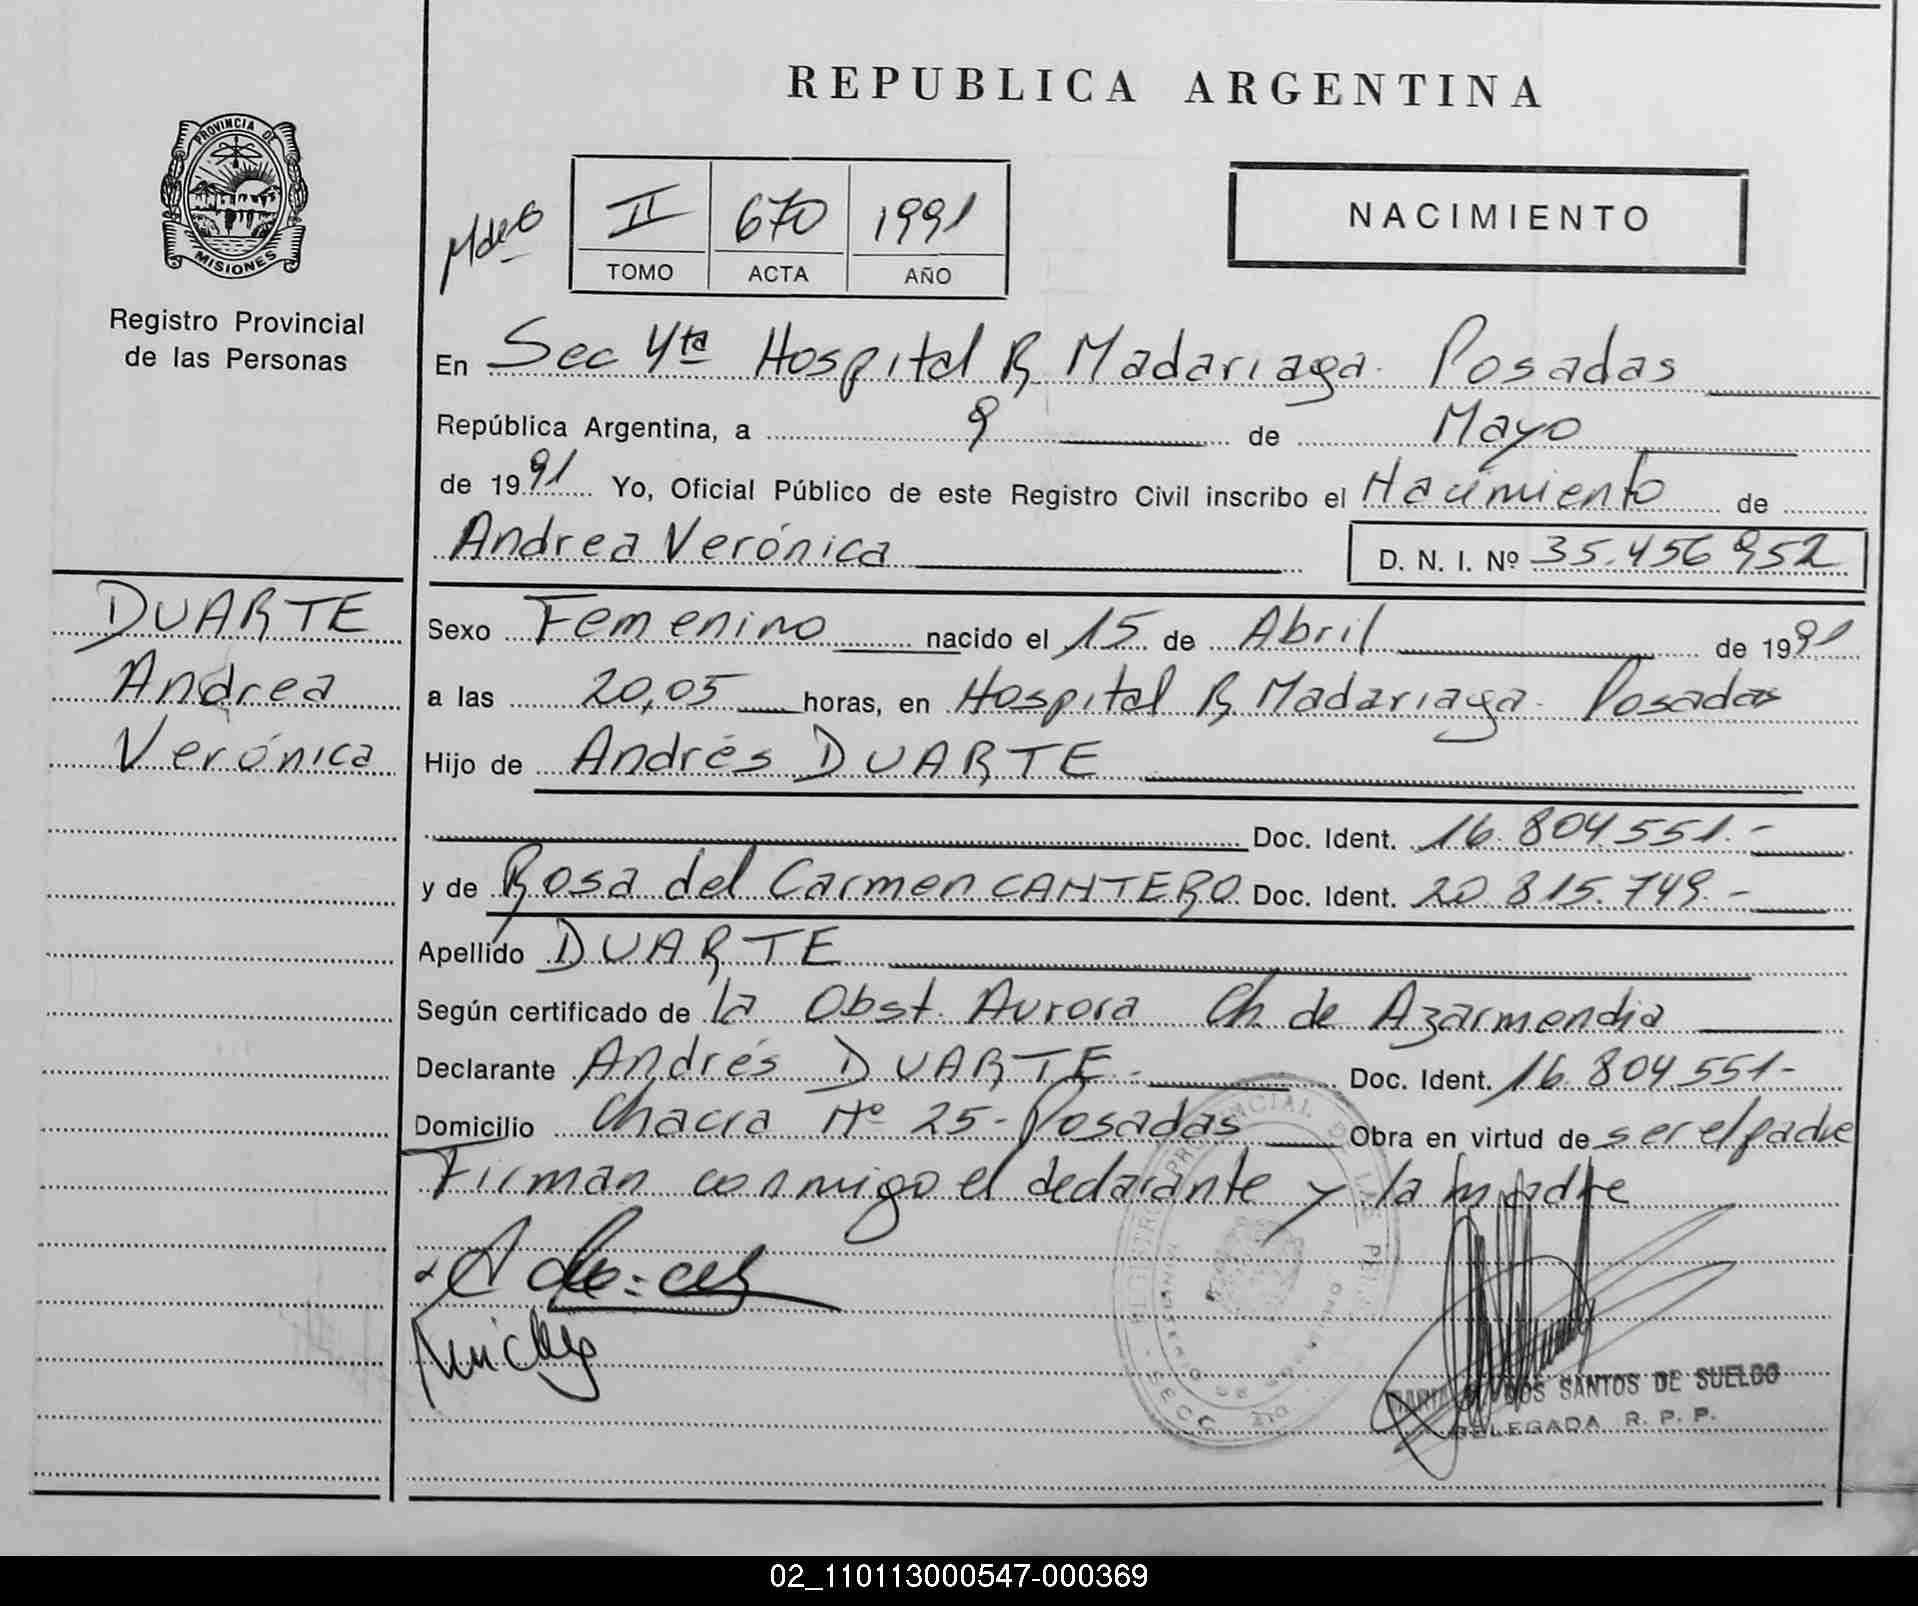 REPUBLICA ARGENTINA
PROVINCIA DE
MISIONES
Registro Provincial
de las Personas
II 670 1991
TOMO ACTA AÑO
NACIMIENTO
En Sec 4ta Hospital R. Madariaga. Posadas
República Argentina, a 9 de Mayo
de 1991 Yo, Oficial Público de este Registro Civil inscribo el Nacimiento de
Andrea Verónica D. N. I. Nº 35.456.952
DUARTE
Andrea
Verónica
Sexo Femenino nacido el 15 de Abril de 1991
a las 20,05 horas, en Hospital R. Madariaga. Posadas
Hijo de Andrés DUARTE
Doc. Ident. 16.804.551.-
y de Rosa del Carmen CANTERO Doc. Ident. 20.815.749.-
Apellido DUARTE
Según certificado de la Obst. Aurora Ch. de Azarmendia
Declarante Andrés DUARTE.- Doc. Ident. 16.804.551-
Domicilio Chacra Nº 25-Posadas Obra en virtud de ser el padre
Firman conmigo el declarante y la madre
DOS SANTOS DE SUELDO
DELEGADA R. P. P.
02_110113000547-000369